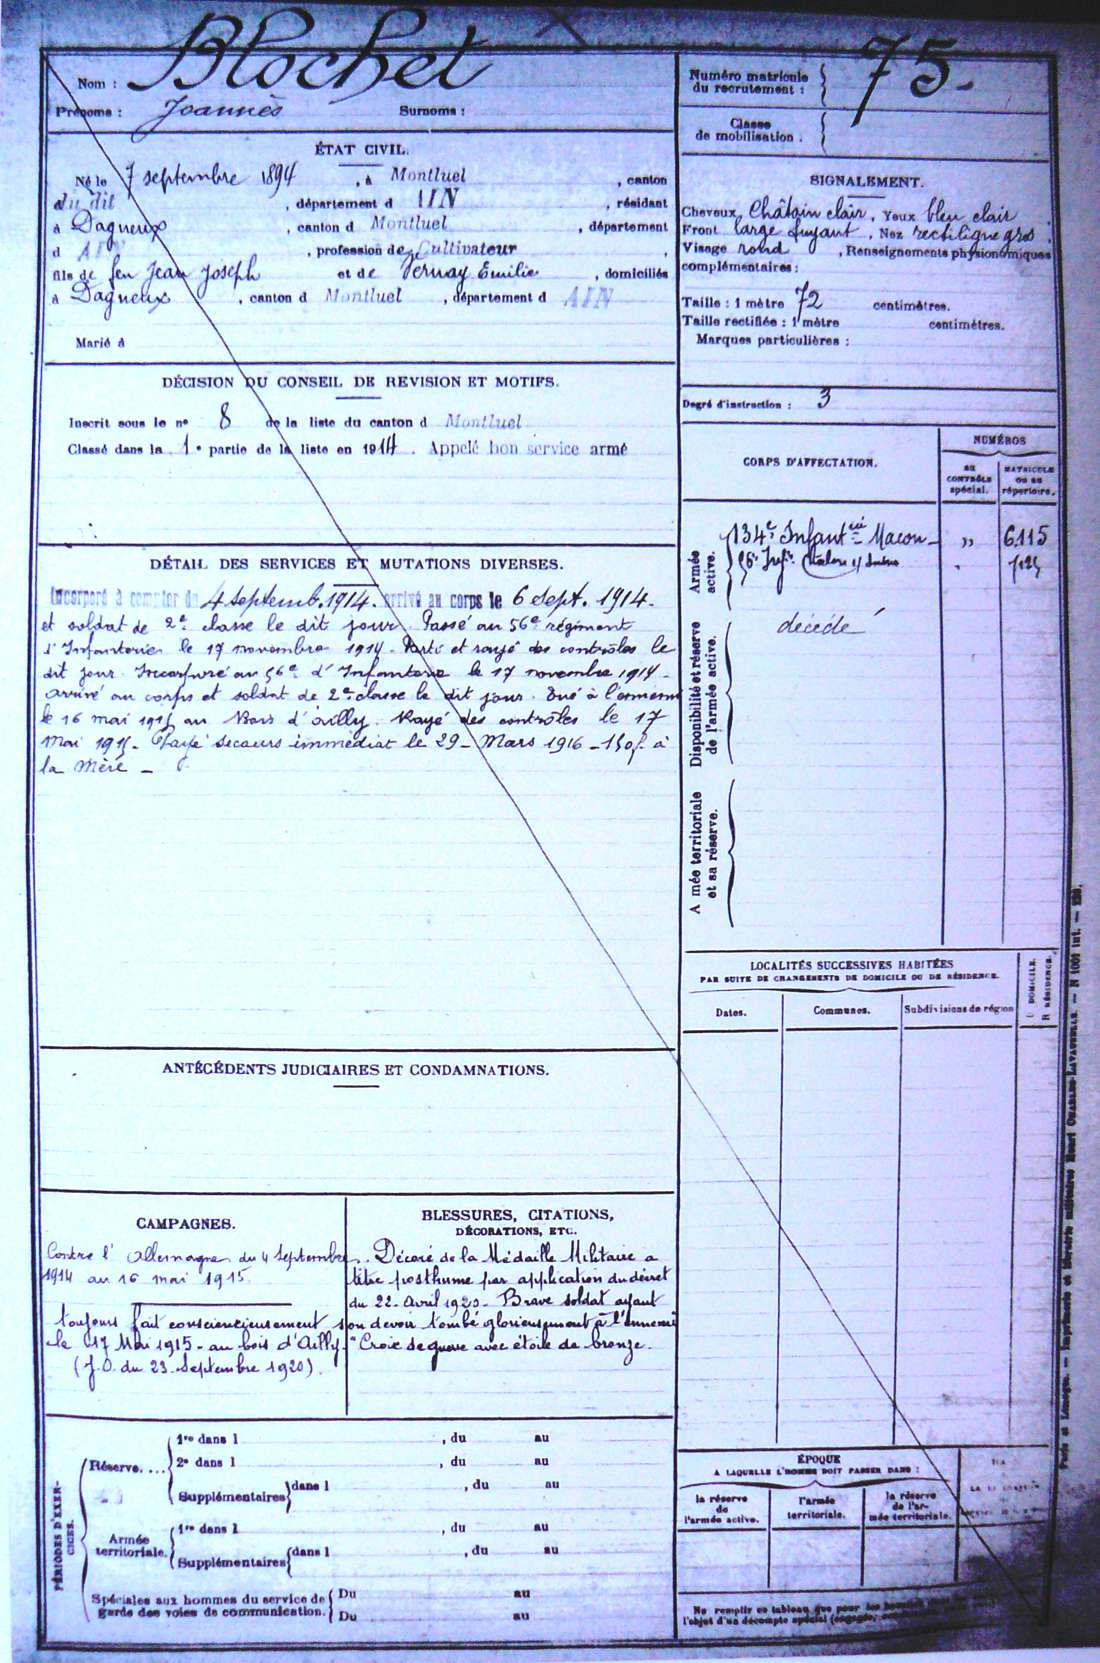 Nom : Blochet
Prénoms : Joannès Surnoms :
Numéro matricule
du recrutement : 75.
Classe
de mobilisation .
ÉTAT CIVIL.
Né le 7 septembre 1894 , à Montluel , canton
du dit , département d AIN , résidant
à Dagneux , canton d Montluel , département
d AIN , profession de Cultivateur ,
fils de feu Jean Joseph et de Vernay Emilie , domiciliés
à Dagneux , canton d Montluel , département d AIN
Marié à
SIGNALEMENT.
Cheveux Châtain clair , Yeux bleu clair .
Front large fuyant , Nez rectiligne gros .
Visage rond , Renseignements physionomiques
complémentaires :
Taille : 1 mètre 72 centimètres.
Taille rectifiée : 1 mètre centimètres.
Marques particulières :
Degré d'instruction : 3
DÉCISION DU CONSEIL DE REVISION ET MOTIFS.
Inscrit sous le no 8 de la liste du canton d Montluel
Classé dans la 1e partie de la liste en 1914 . Appelé bon service armé
CORPS D'AFFECTATION.
NUMÉROS
AU
CONTRÔLE
spécial.
MATRICULE
OU AU
répertoire.
Armée
active.
134e Infantrie Macon - " 6.115
56e Infie Chalon s/ Saône
Disponibilité et réserve
de l'armée active.
décédé
A mée territoriale
et sa réserve.
DÉTAIL DES SERVICES ET MUTATIONS DIVERSES.
Incorporé à compter du 4 septemb. 1914. arrivé au corps le 6 sept. 1914.
et soldat de 2e classe le dit jour. Passé au 56e régiment
d'Infanterie le 17 novembre 1914. Parti et rayé des contrôles le
dit jour. Incorporé au 56e d'Infanterie le 17 novembre 1914.
arrivé au corps et soldat de 2e classe le dit jour. Tué à l'ennemi
le 16 mai 1915 au Bois d'Ailly. Rayé des contrôles le 17
Mai 1915. Payé secours immédiat le 29 - Mars 1916 - 150f à
la Mère -
LOCALITÉS SUCCESSIVES HABITÉES
PAR SUITE DE CHANGEMENTS DE DOMICILE OU DE RÉSIDENCE.
Dates. Communes. Subdivisions de région
D DOMICILE.
R RÉSIDENCE.
ANTÉCÉDENTS JUDICIAIRES ET CONDAMNATIONS.
CAMPAGNES.
Contre l'Allemagne du 4 Septembre
1914 au 16 mai 1915.
BLESSURES, CITATIONS,
DÉCORATIONS, ETC.
Décoré de la Médaille Militaire a
titre posthume par application du décret
du 22. Avril 1920. Brave soldat ayant
toujours fait consciencieusement son devoir tombé glorieusement à l'Ennemi
le 17 Mai 1915 - au bois d'Ailly. "Croix de guerre avec étoile de bronze.
(J.O. du 23 Septembre 1920).
PÉRIODES D'EXER-
CICES.
Réserve. ...
1re dans l , du au
2e dans l , du au
Supplémentaires dans l , du au
Armée
territoriale.
1re dans l , du au
Supplémentaires dans l , du au
Spéciales aux hommes du service de
garde des voies de communication.
Du au
Du au
ÉPOQUE
A LAQUELLE L'HOMME DOIT PASSER DANS :
la réserve
de
l'armée active.
l'armée
territoriale.
la réserve
de l'ar-
mée territoriale.
Ne remplir ce tableau que pour les hommes
l'objet d'un décompte spécial
Paris et Limoges. — Imprimerie et librairie militaires Henri CHARLES-LAVAUZELLE. — N 1001 int. —